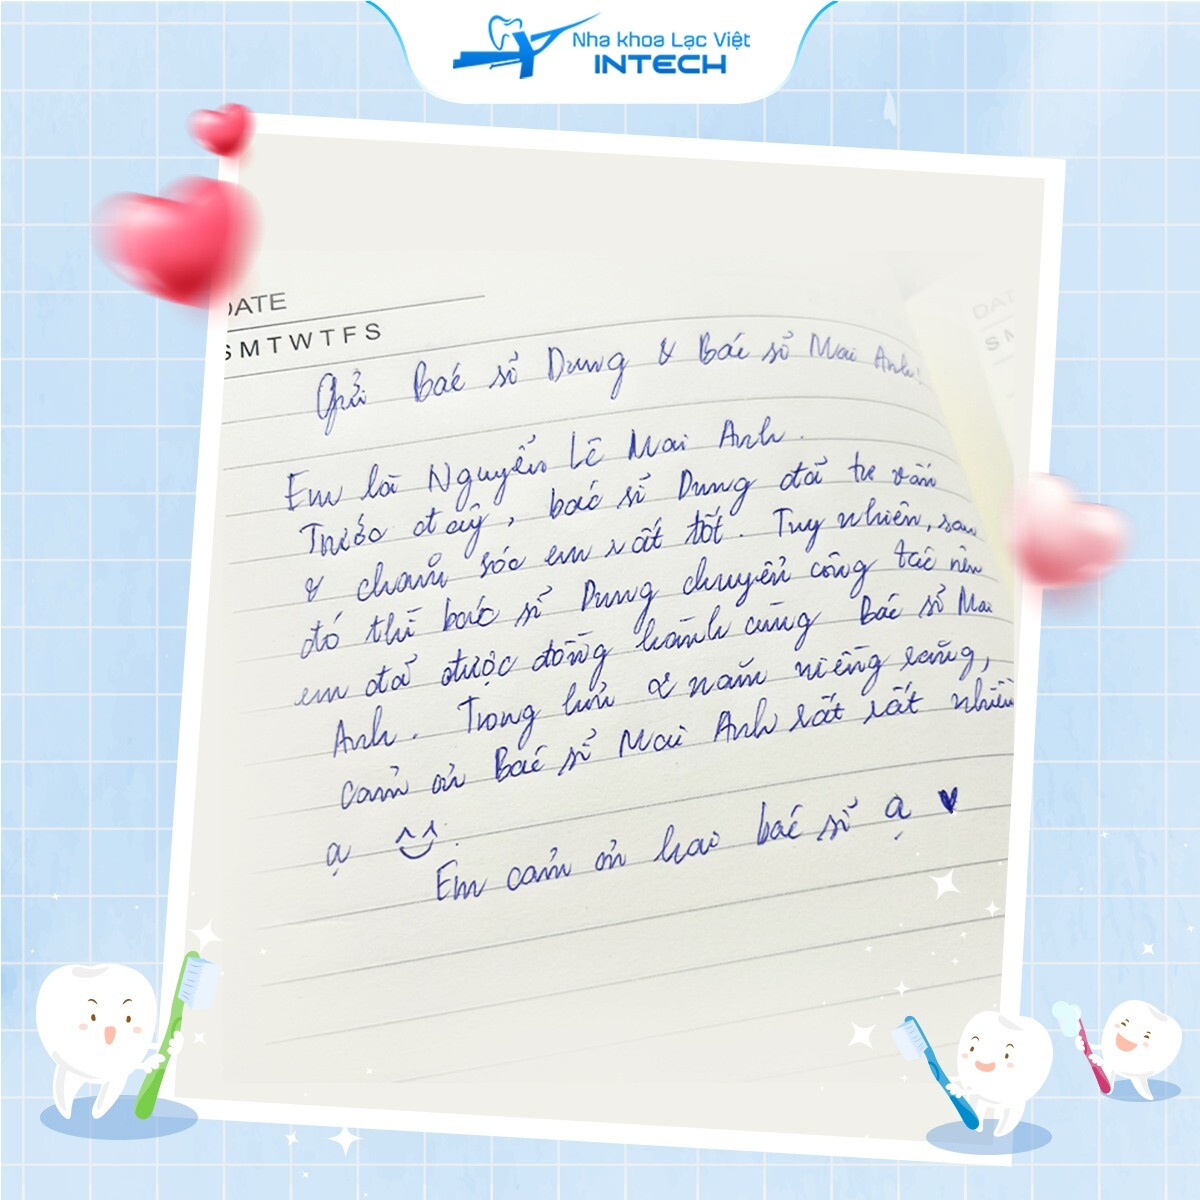 Nha khoa Lạc Việt
INTECH
DATE
S M T W T F S
DAT
S M
Gửi Bác sĩ Dung & Bác sĩ Mai Anh!
Em là Nguyễn Lê Mai Anh.
Trước đây, bác sĩ Dung đã tư vấn
& chăm sóc em rất tốt. Tuy nhiên, sau
đó thì bác sĩ Dung chuyển công tác nên
em đã được đồng hành cùng Bác sĩ Mai
Anh. Trong hơn 2 năm niềng răng,
cảm ơn Bác sĩ Mai Anh rất rất nhiều
ạ ^^
Em cảm ơn hai bác sĩ ạ ♥